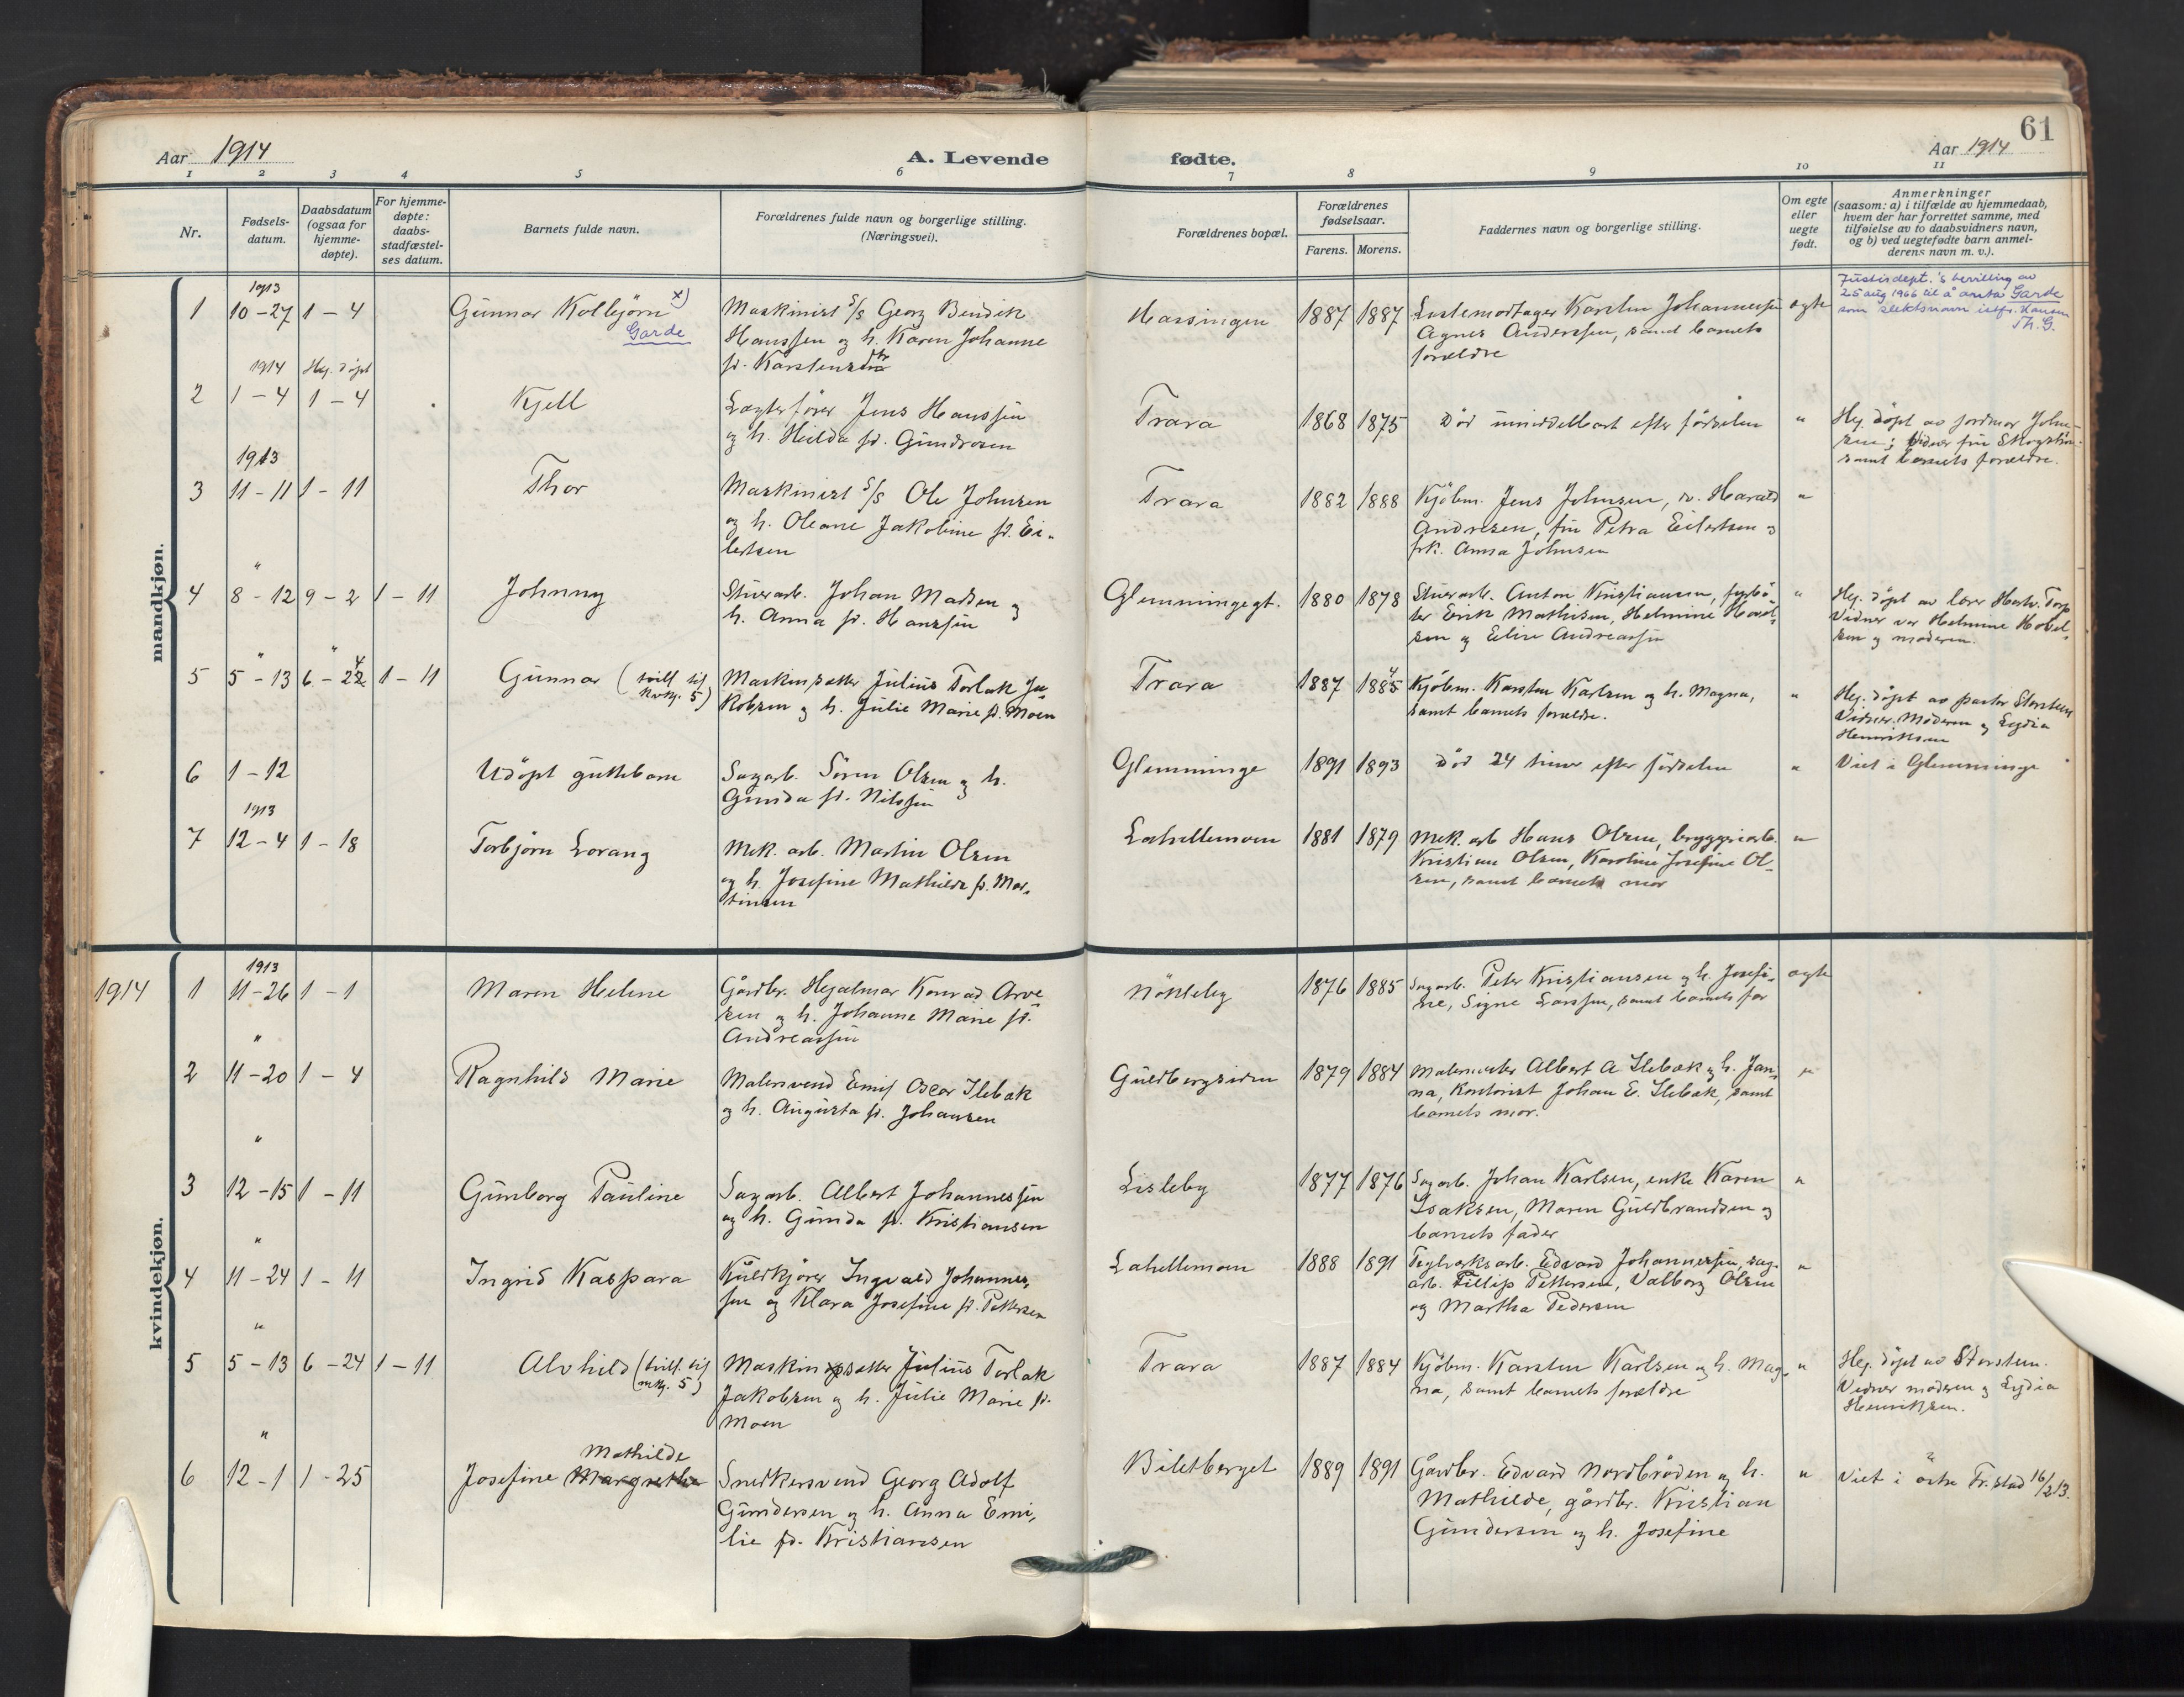 Aar 1914
A. Levende
fødte.
Aar 1914
61
1 2 3 4 5 6 7 8 9 10 11
Nr.
Fødsels-
datum.
Daabsdatum
(ogsaa for
hjemme-
døpte).
For hjemme-
døpte:
daabs-
stadfæstel-
ses datum.
Barnets fulde navn.
Forældrenes fulde navn og borgerlige stilling.
(Næringsvei).
Forældrenes bopæl.
Forældrenes
fødselsaar.
Farens. Morens.
Faddernes navn og borgerlige stilling.
Om egte
eller
uegte
født.
Anmerkninger
(saasom: a) i tilfælde av hjemmedaab,
hvem der har forrettet samme, med
tilføielse av to daabsvidners navn,
og b) ved uegtefødte barn anmel-
derens navn m. v.).
mandkjøn.
1
1913
10-27
1-4
Gunnar Kolbjørn x)
Garde
Maskinist S/S Georg Bendik
Hanssen og h. Karen Johanne
f. Karstensdtr
Hassingen
1887 1887
Karsten Johannessen
Agnes Anderssen, samt barnets
forældre
egte
Justisdept.'s bevilling av
25 aug 1966 til å anta Garde
som slektsnavn istf. Hansen
Th. G.
2
1914
1-4
Hj. døpt
1-4
Kjell
Lægterfører Jens Hanssen
og h. Hilda f. Gundrosen
Trara
1868 1875
Død umiddelbart efter fødselen
"
Hj. døpt av jordmor John-
sen; Vidner fru
samt barnets forældre.
3
1913
11-11
1-11
Thor
Maskinist S/S Ole Johnsen
og h. Oleane Jakobine f. Ei-
lertsen
Trara
1882 1888
Kjöbm. Jens Johnsen, Harald
Andresen, fru Petra Eilertsen og
frk. Anna Johnsen
"
4
"
8-12
9-2
1-11
Johnny
Stuerarb. Johan Madsen og
h. Anna f. Hanssen
Glemmingegt.
1880 1878
Stuerarb. Anton Kristiansen, fyrbö-
ter Erik Mathisen, Helmine Hovel-
sen og Elise Andreassen
"
Hj. døpt av lærer Torp
Vidner var Helmine Hovel-
sen og moderen.
5
"
5-13
"
6-24
1-11
Gunnar (tvill. til
kvkj. 5)
Maskinsætter Julius Torlak Ja-
kobsen og h. Julie Marie f. Moen
Trara
1887 1884
Kjöbm. Karsten Karlsen og h. Magna,
samt barnets forældre.
"
Hj. døpt av pastor Storsteen
Vidner. Moderen og Lydia
Henriksen
6
1-12
Udöpt guttebarn
Sagarb. Sören Olsen og h.
Gunda f. Nilssen
Glemminge
1891 1893
Död 24 timer efter fødselen
"
Viet i Glemminge
7
1913
12-4
1-18
Torbjørn Lorang
Mek. arb. Martin Olsen
og h. Josefine Mathilde f. Mar-
tinsen
Lahellemoen
1881 1879
Mek. arb Hans Olsen, bryggeriarb.
Kristian Olsen, Karoline Josefine Ol-
sen, samt barnets mor
"
kvindekjøn.
1914
1
1913
11-26
1-1
Maren Helene
Gårdbr. Hjalmar Konrad Arve-
sen og h. Johanne Marie f.
Andreassen
Nökleby
1876 1885
Sagarb. Peter Kristiansen og h. Josefi-
ne, Signe Larssen, samt barnets far
egte
2
"
11-20
1-4
Ragnhild Marie
Malersvend Emil Oscar Ilebæk
og h. Augusta f. Johansen
Guldbergsiden
1879 1884
Malermester Albert A Ilebæk og h. Jan-
na, Kontorist Johan E. Ilebæk, samt
barnets mor.
"
3
"
12-15
1-11
Gunborg Pauline
Sagarb. Albert Johannessen
og h. Gunda f. Kristiansen
Lisleby
1877 1876
Sagarb. Johan Karlsen, enke Karen
Isaksen, Maren Guldbrandsen og
barnets fader
"
4
"
11-24
1-11
Ingrid Kaspara
Kulkjører Ingvald Johannes-
sen og Klara Josefine f. Pettersen
Lahellemoen
1888 1891
Teglverksarb. Edvard Johannessen, sag-
arb. Fillip Pettersen, Valborg Olsen
og Martha Pedersen
"
5
"
5-13
6-24
1-11
Alvhild (tvill. til
mkj. 5)
Maskinopsætter Julius Torlak
Jakobsen og h. Julie Marie f.
Moen
Trara
1887 1884
Kjöbm. Karsten Karlsen og h. Mag-
na, samt barnets forældre
"
Hj. døpt av Storsteen.
Vidner moderen og Lydia
Henriksen.
6
"
12-1
1-25
Mathilde
Josefine Margrethe
Snedkersvend Georg Adolf
Gundersen og h. Anna Emi-
lie f. Kristiansen
Biletberget
1889 1891
Gårdbr. Edvard Nordbröden og h.
Mathilde, gårdbr. Kristian
Gundersen og h. Josefine
"
Viet i östre Fr.stad 16/2 13.